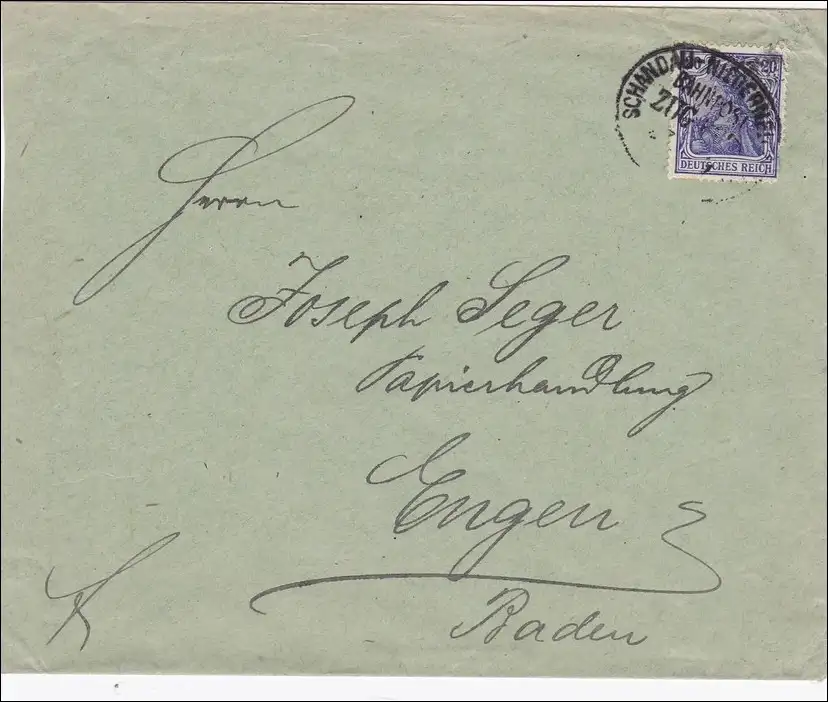 SCHANDAU-
BAHNPOST
ZUG
20
DEUTSCHES REICH
Herrn
Joseph Seger
Papierhandlung
Engen
Baden